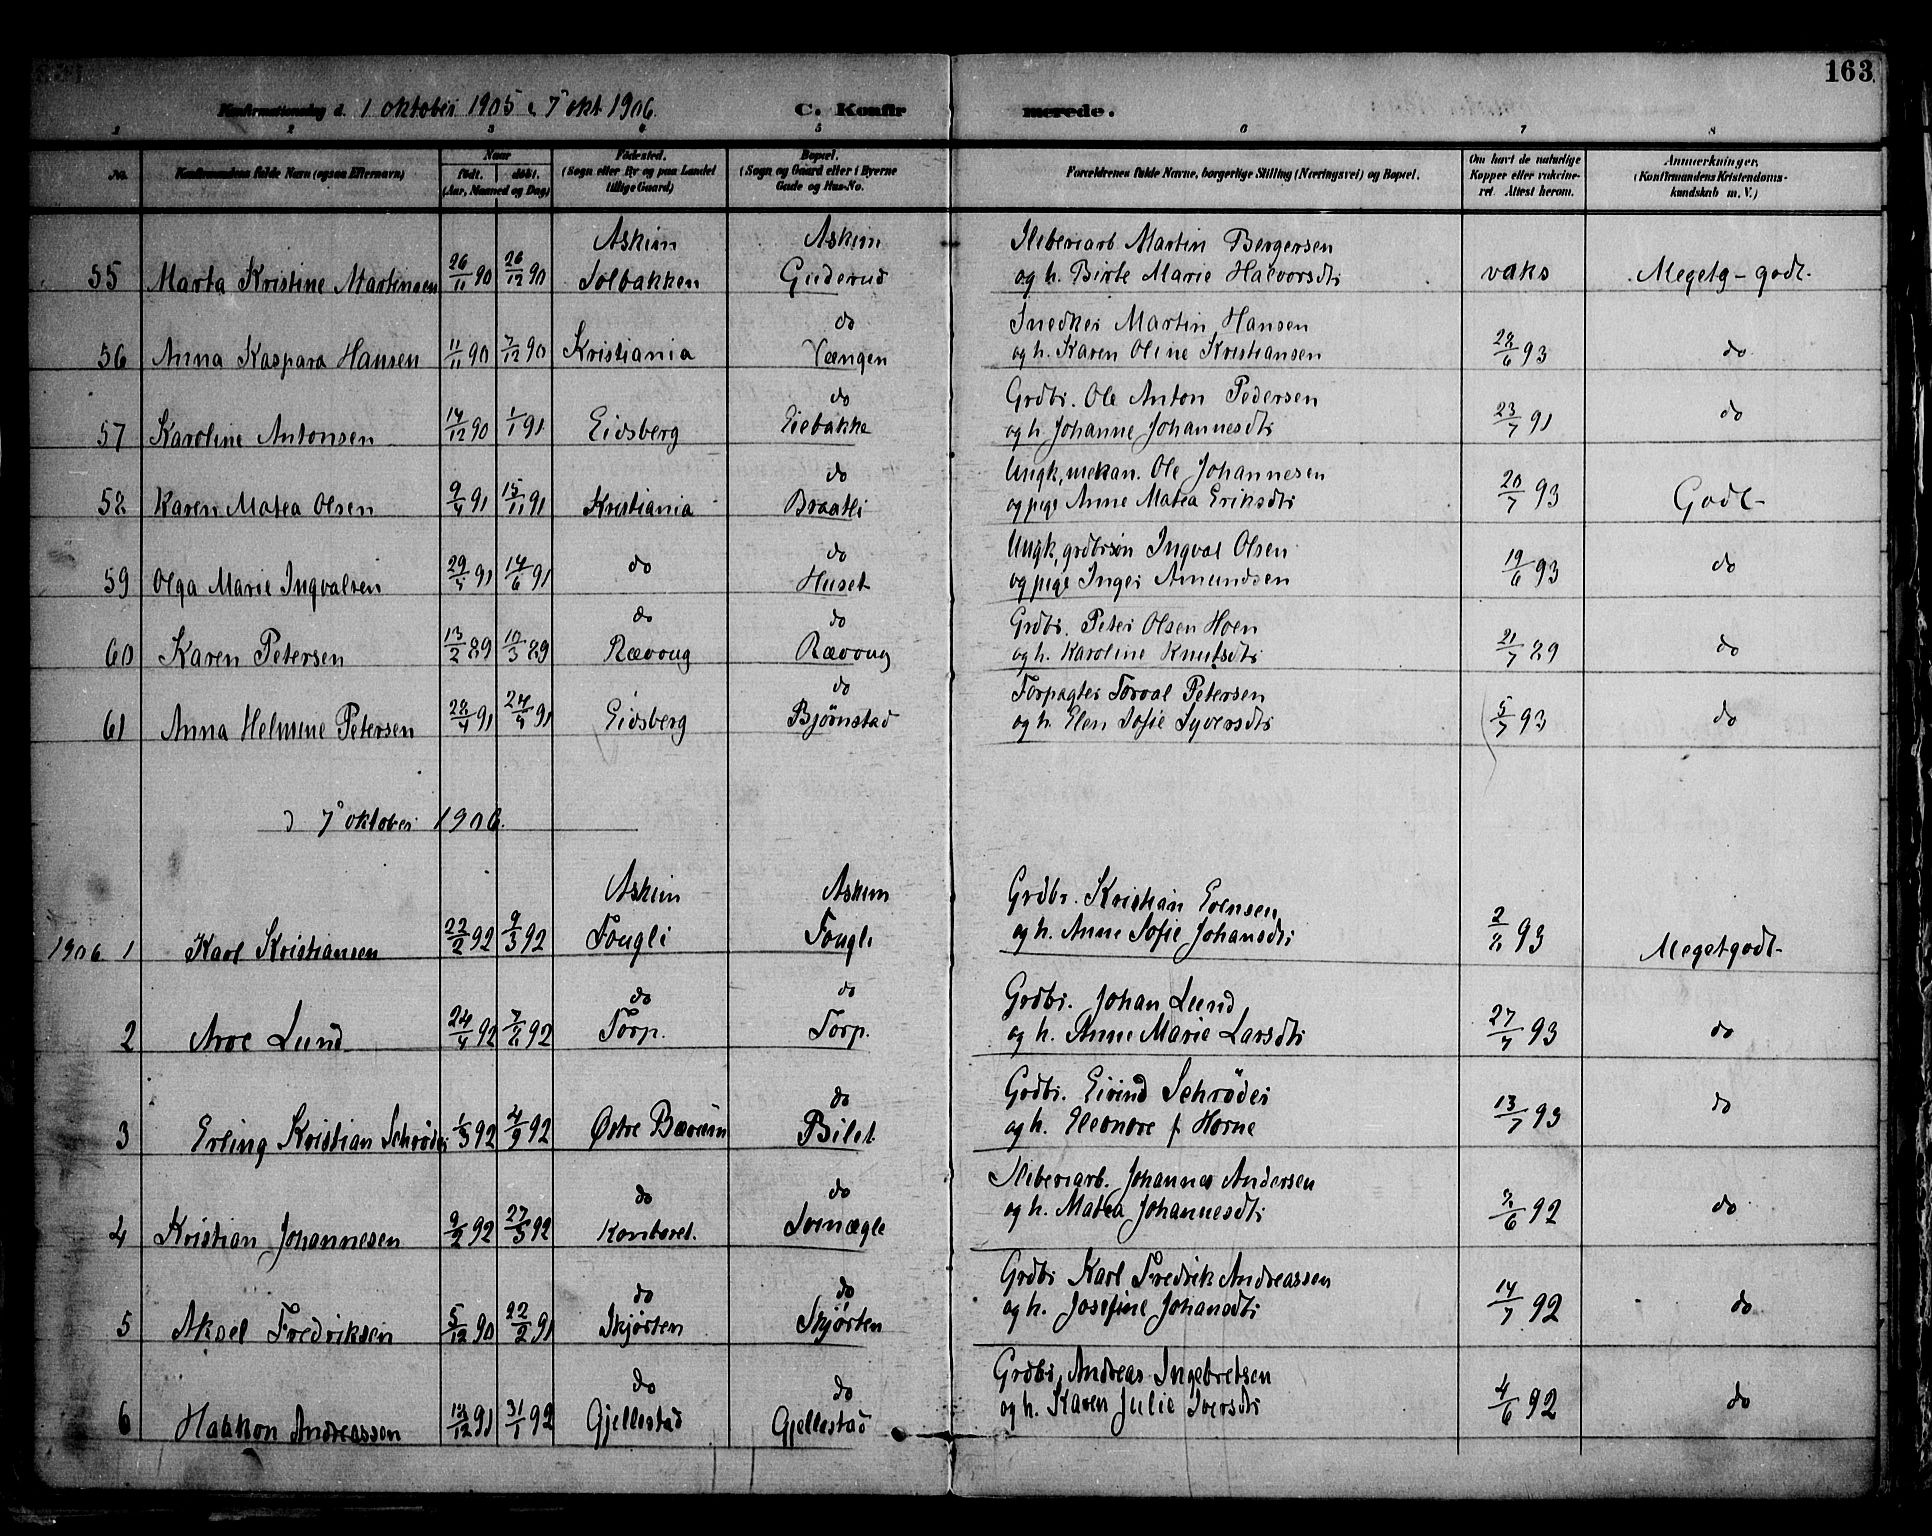 163
Konfirmationsdag d. 1 oktober 1905 & 7 okt 1906. C. Konfirmerede.
1 2 3 4 5 6 7 8
No. Konfirmandens fulde Navn (ogsaa Efternavn) Naar født. døbt. (Aar, Maaned og Dag) Fødested. (Sogn eller By og paa Landet tillige Gaard) Bopæl. (Sogn og Gaard eller i Byerne Gade og Hus-No. Forældrenes fulde Navne, borgerlige Stilling (Næringsvei) og Bopæl. Om havt de naturlige Kopper eller vakcineret. Attest herom. Anmærkninger. (Konfirmandens Kristendomskundskab m. V.)
Askim Askim Sliberiarb Martin Bergersen
55 Marta Kristine Martinsen 26/11 90 26/12 90 Solbakken Guderud og h. Birte Marie Halvorsdtr vaks Megetg-godt-
do Snedker Martin Hansen
56 Anna Kaspara Hansen 11/11 90 7/12 90 Kristiania Vængen og h. Karen Oline Kristiansen 28/6 93 do
do Grdbr. Ole Anton Pedersen
57 Karoline Antonsen 14/12 90 1/1 91 Eidsberg Eiebakke og h. Johanne Johannesdtr 23/7 91 do
do Ungk, mekan. Ole Johannesen
58 Karen Matea Olsen 9/4 91 15/11 91 Kristiania Braatli og pige Anne Matea Eriksdtr 20/7 93 Godt-
do Ungk, grdbrsøn Ingval Olsen
59 Olga Marie Ingvalsen 29/4 91 14/6 91 do Huset og pige Inger Amundsen 19/6 93 do
do do Grdbr. Peter Olsen Hoen
60 Karen Petersen 13/2 89 10/3 89 Rævoug Rævoug og h. Karoline Knutsdtr 21/7 89 do
do Forpagter Torval Petersen
61 Anna Helmine Petersen 28/4 91 24/5 91 Eidsberg Bjørnstad og h. Elen Sofie Syversdtr 5/7 93 do
d 7 oktober 1906.
Askim Askim Grdbr. Kristian Evensen
1906 1 Karl Kristiansen 22/2 92 9/3 92 Fougli Fougli og h. Anne Sofie Johansdtr 2/8 93 Megetgodt-
do do Grdbr. Johan Lund
2 Arve Lund 24/4 92 7/6 92 Torp. Torp. og h. Anne Marie Larsdtr 27/7 93 do
do Grdbr. Eivind Schrøder
3 Erling Kristian Schrøder 1/3 92 4/9 92 Østre Bærum Bilet og h. Eleonore f Horne 13/7 93 do
do do Sliberiarb. Johannes Andersen
4 Kristian Johannesen 9/2 92 27/3 92 Kontoret. Svenægle og h. Matea Johannesdtr 3/6 92 do
do do Grdbr Karl Fredrik Andreassen
5 Aksel Fredriksen 5/12 90 22/2 91 Skjørten Skjørten og h. Josefine Johansdtr 14/7 92 do
do do Grdbr, Andreas Ingebretsen
6 Haakon Andreassen 18/12 91 31/1 92 Gjellestad Gjellestad og h. Karen Julie Iversdtr 4/6 92 do